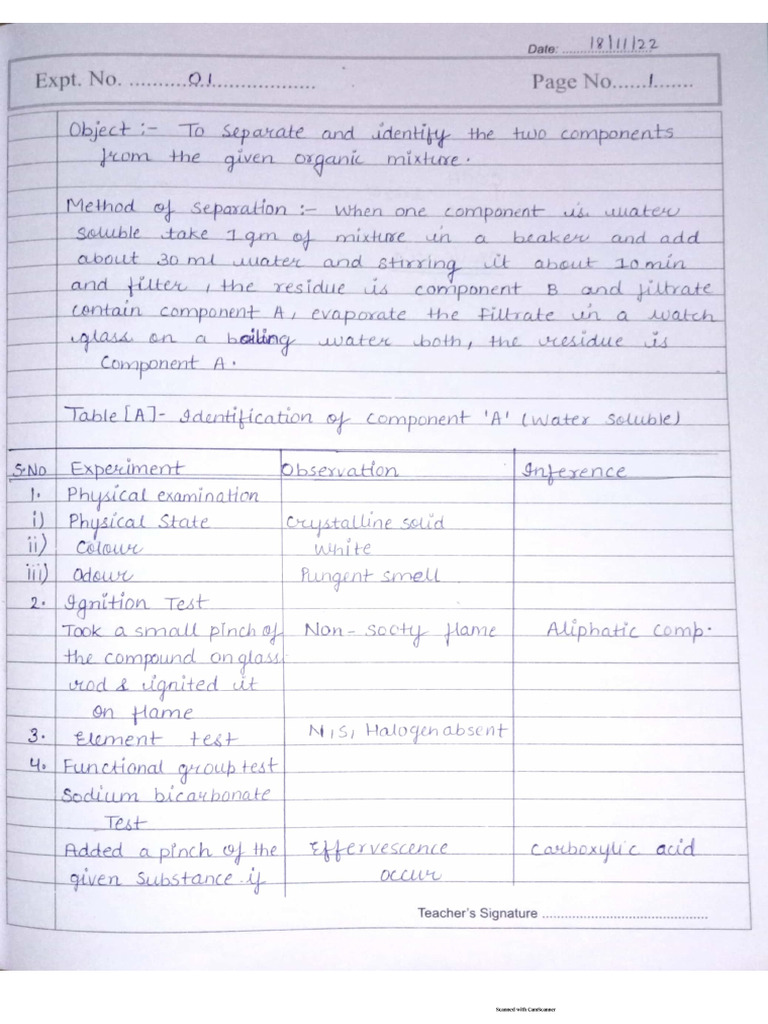 Date: ............ 18/11/22
Expt. No. ..........01................... Page No......1.......
Object :- To separate and identify the two components
from the given organic mixture.
Method of separation :- When one component is water
soluble take 1gm of mixture in a beaker and add
about 30 ml water and stirring it about 10min
and filter, the residue is component B and filtrate
contain component A, evaporate the filtrate in a watch
glass on a boiling water both, the residue is
Component A.
Table [A]- Identification of component 'A' (Water soluble)
S.No Experiment Observation Inference
1. Physical examination
i) Physical State Crystalline solid
ii) Colour White
iii) Odour Pungent smell
2. Ignition Test
Took a small pinch of Non-sooty flame Aliphatic comp.
the compound on glass
rod & ignited it
on flame
3. Element test N, S, Halogen absent
4. Functional group test
Sodium bicarbonate
Test
Added a pinch of the Effervescence Carboxylic acid
given substance if occur
Teacher's Signature ............................................
Scanned with CamScanner